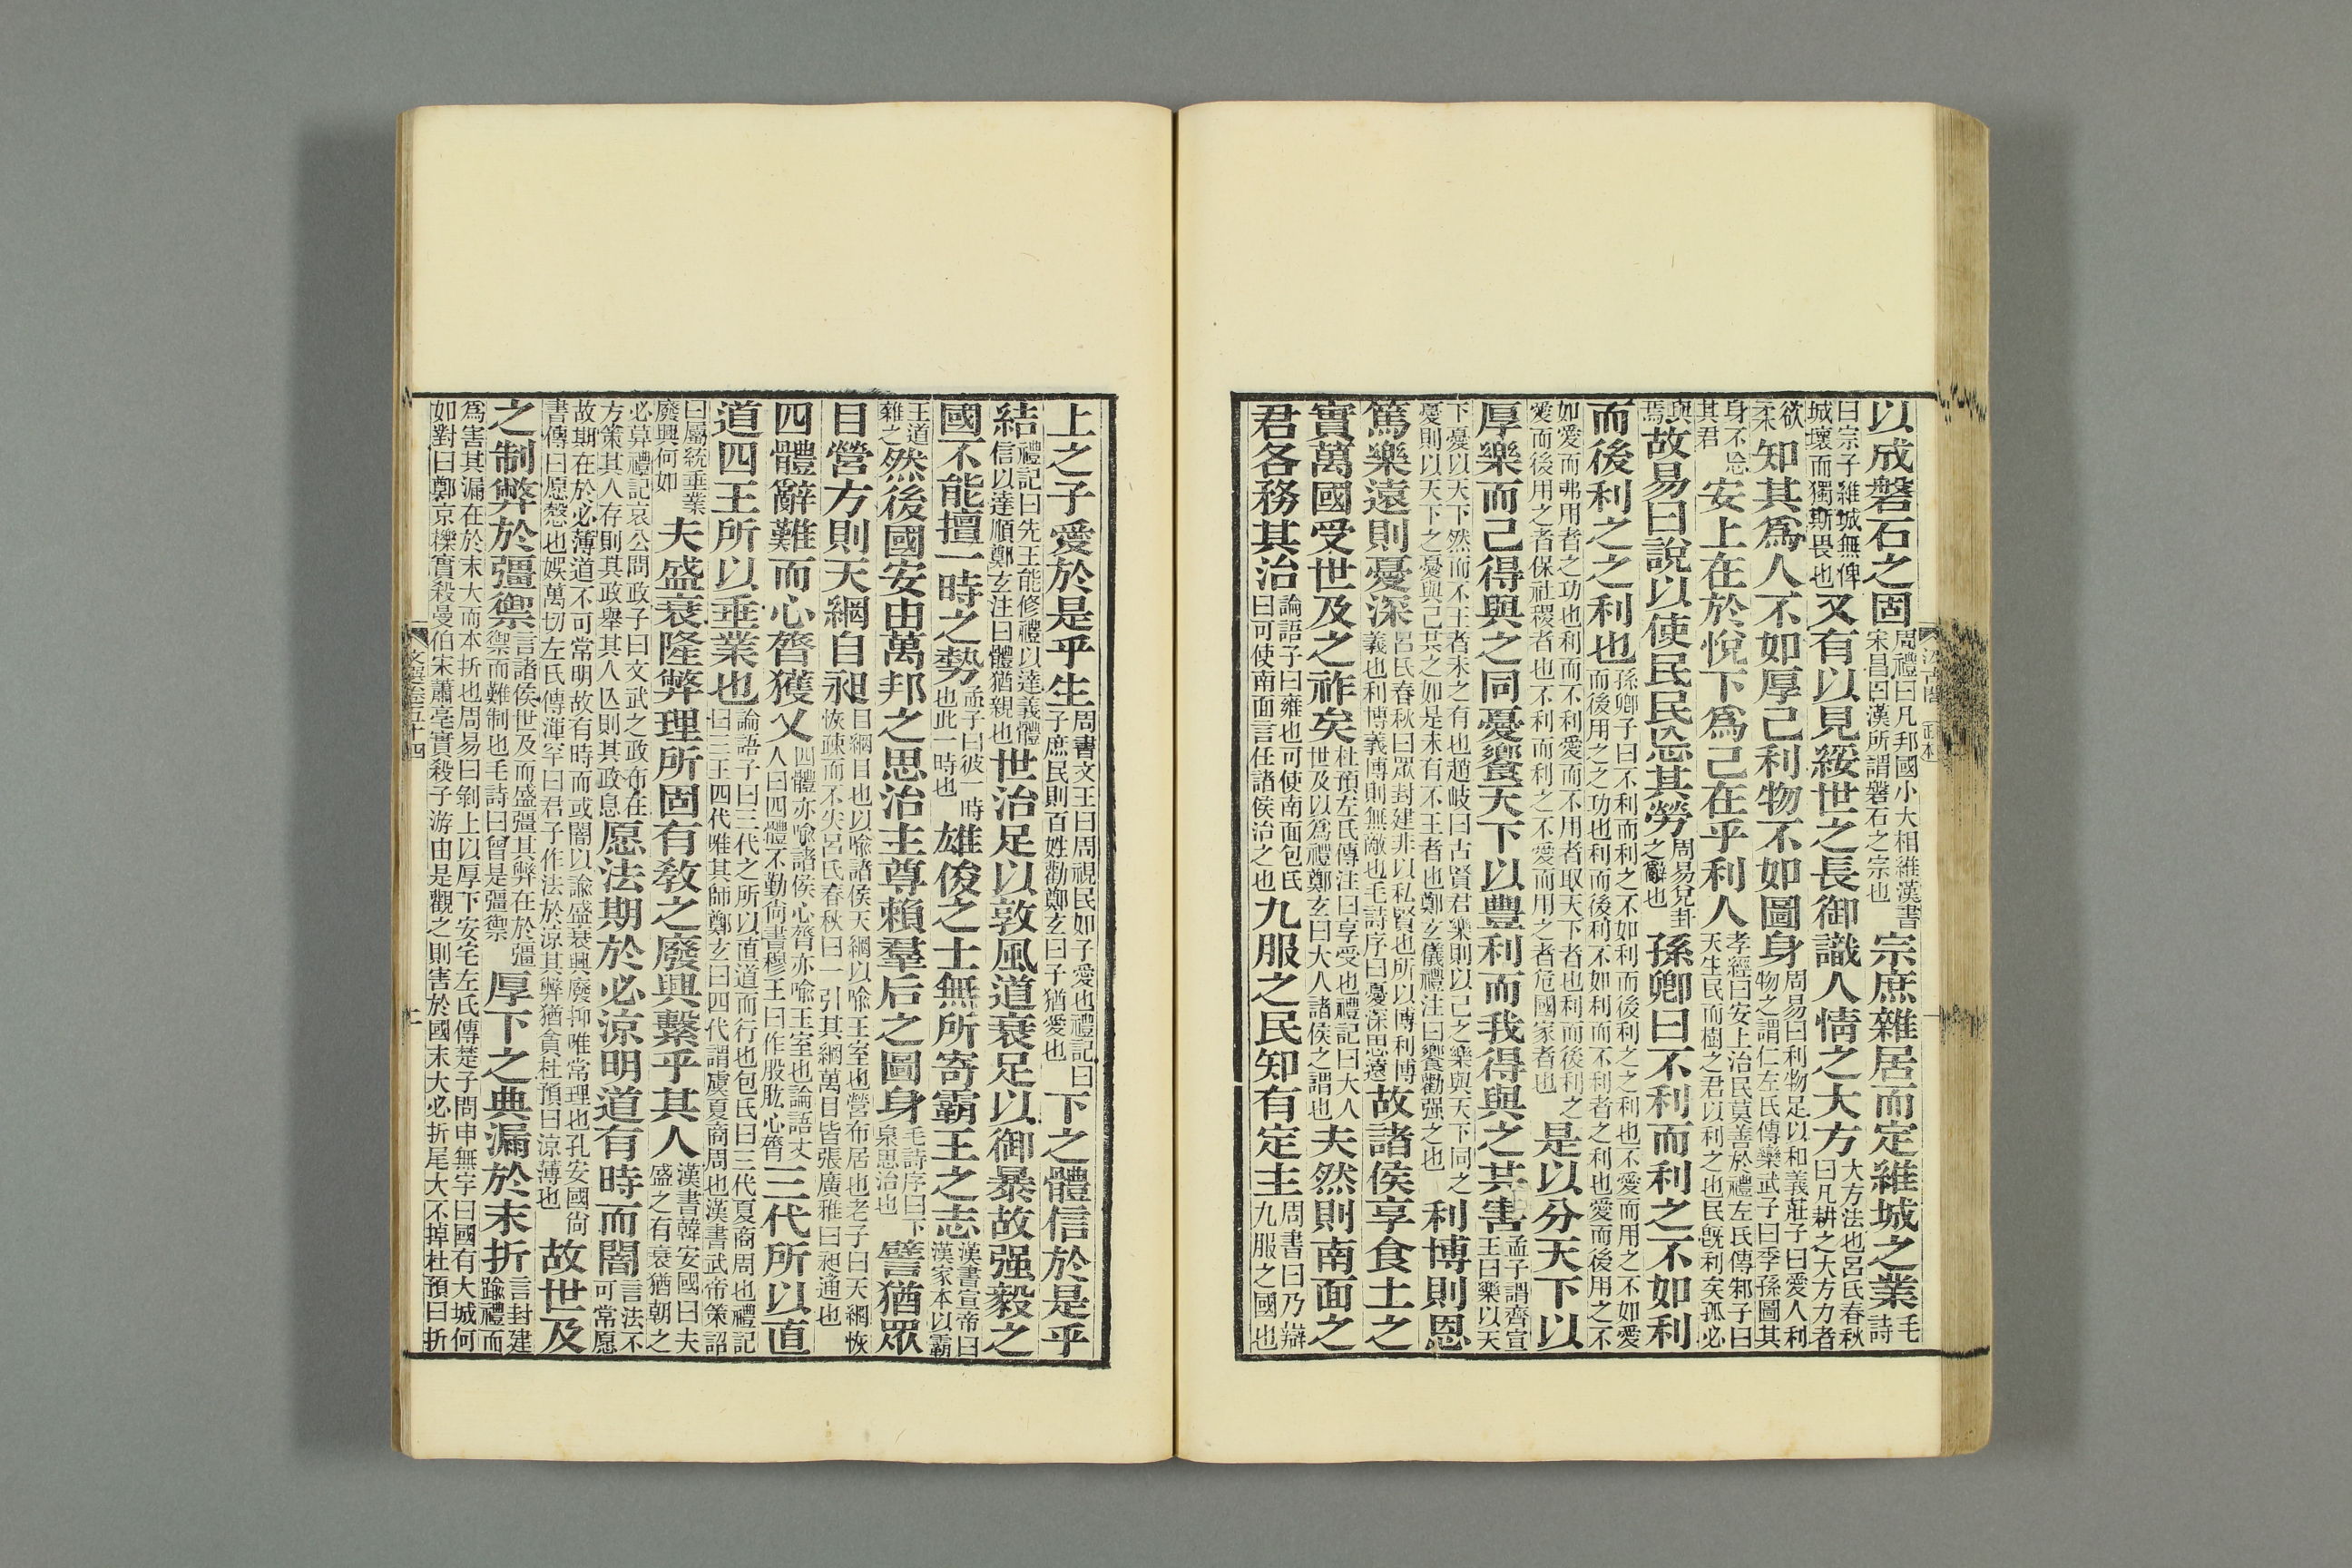 以成磐石之固周禮曰凡邦國小大相維漢書宋昌曰漢所謂磐石之宗也宗庶雜居而定維城之業毛詩
曰宗子維城無俾城壞而獨斯畏也又有以見綏世之長御識人情之大方大方法也呂氏春秋曰凡耕之大方力者
欲柔知其爲人不如厚己利物不如圖身周易曰利物足以和義莊子曰愛人利物之謂仁左氏傳欒武子曰季孫圖其
身不忩其君安上在於悅下爲己在乎利人孝經曰安上治民莫善於禮左氏傳邾子曰天生民而樹之君以利之也民旣利矣孤必
與焉故易曰說以使民民忘其勞周易兌卦之辭也孫卿曰不利而利之不如利
而後利之之利也孫卿子曰不利而利之不如利而後利之之利也不愛而用之不如愛而後用之之功也利而後利不如利而不利者之利也愛而後用之不
如愛而弗用者之功也利而不利愛而不用者取天下者也利而後利之愛而後用之者保社稷者也不利而利之不愛而用之者危國家者也是以分天下以
厚樂而己得與之同憂饗天下以豐利而我得與之共害孟子謂齊宣王曰樂以天
下憂以天下然而不王者未之有也趙岐曰古賢君樂則以己之樂與天下同之憂則以天下之憂與己共之如是未有不王者也鄭玄儀禮注曰饗勸强之也利博則恩
篤樂遠則憂深呂氏春秋曰眾封建非以私賢也所以博利博義也利博義博則無敵也毛詩序曰憂深思遠故諸侯享食土之
實萬國受世及之祚矣杜預左氏傳注曰享受也禮記曰大人世及以爲禮鄭玄曰大人諸侯之謂也夫然則南面之
君各務其治論語子曰雍也可使南面包氏曰可使南面言任諸侯治之也九服之民知有定主周書曰乃辯九服之國也
上之子愛於是乎生周書文王曰周視民如子愛也禮記曰子庶民則百姓勸鄭玄曰子猶愛也下之體信於是乎
結禮記曰先王能修禮以達義體信以達順鄭玄注曰體猶親也世治足以敦風道衰足以御暴故强毅之
國不能擅一時之勢孟子曰彼一時也此一時也雄俊之士無所寄霸王之志漢書宣帝曰漢家本以霸
王道雜之然後國安由萬邦之思治主尊賴羣后之圖身毛詩序曰下泉思治也譬猶眾
目營方則天網自昶目網目也以喻諸侯天網以喻王室也營布居也老子曰天網恢恢疎而不失呂氏春秋曰一引其綱萬目皆張廣雅曰昶通也
四體辭難而心膂獲乂四體亦喻諸侯心膂亦喻王室也論語丈人曰四體不勤尙書穆王曰作股肱心膂三代所以直
道四王所以垂業也論語子曰三代之所以直道而行也包氏曰三代夏商周也禮記曰三王四代唯其師鄭玄曰四代謂虞夏商周也漢書武帝策詔
曰屬統垂業廢興何如夫盛衰隆弊理所固有敎之廢興繫乎其人漢書韓安國曰夫盛之有衰猶朝之
必莫禮記哀公問政子曰文武之政布在方策其人存則其政舉其人亾則其政息愿法期於必凉明道有時而闇言法不可常愿
故期在於必薄道不可常明故有時而或闇以論盛衰興廢抑唯常理也孔安國尙書傳曰愿慤也娛萬切左氏傳渾罕曰君子作法於凉其弊猶貪杜預曰凉薄也故世及
之制弊於彊禦言諸侯世及而盛彊其弊在於彊禦而難制也毛詩曰曾是彊禦厚下之典漏於末折言封建踰禮而
爲害其漏在於末大而本折也周易曰剝上以厚下安宅左氏傳楚子問申無宇曰國有大城何如對曰鄭京櫟實殺曼伯宋蕭亳實殺子游由是觀之則害於國末大必折尾大不掉杜預曰折
文選卷五十四